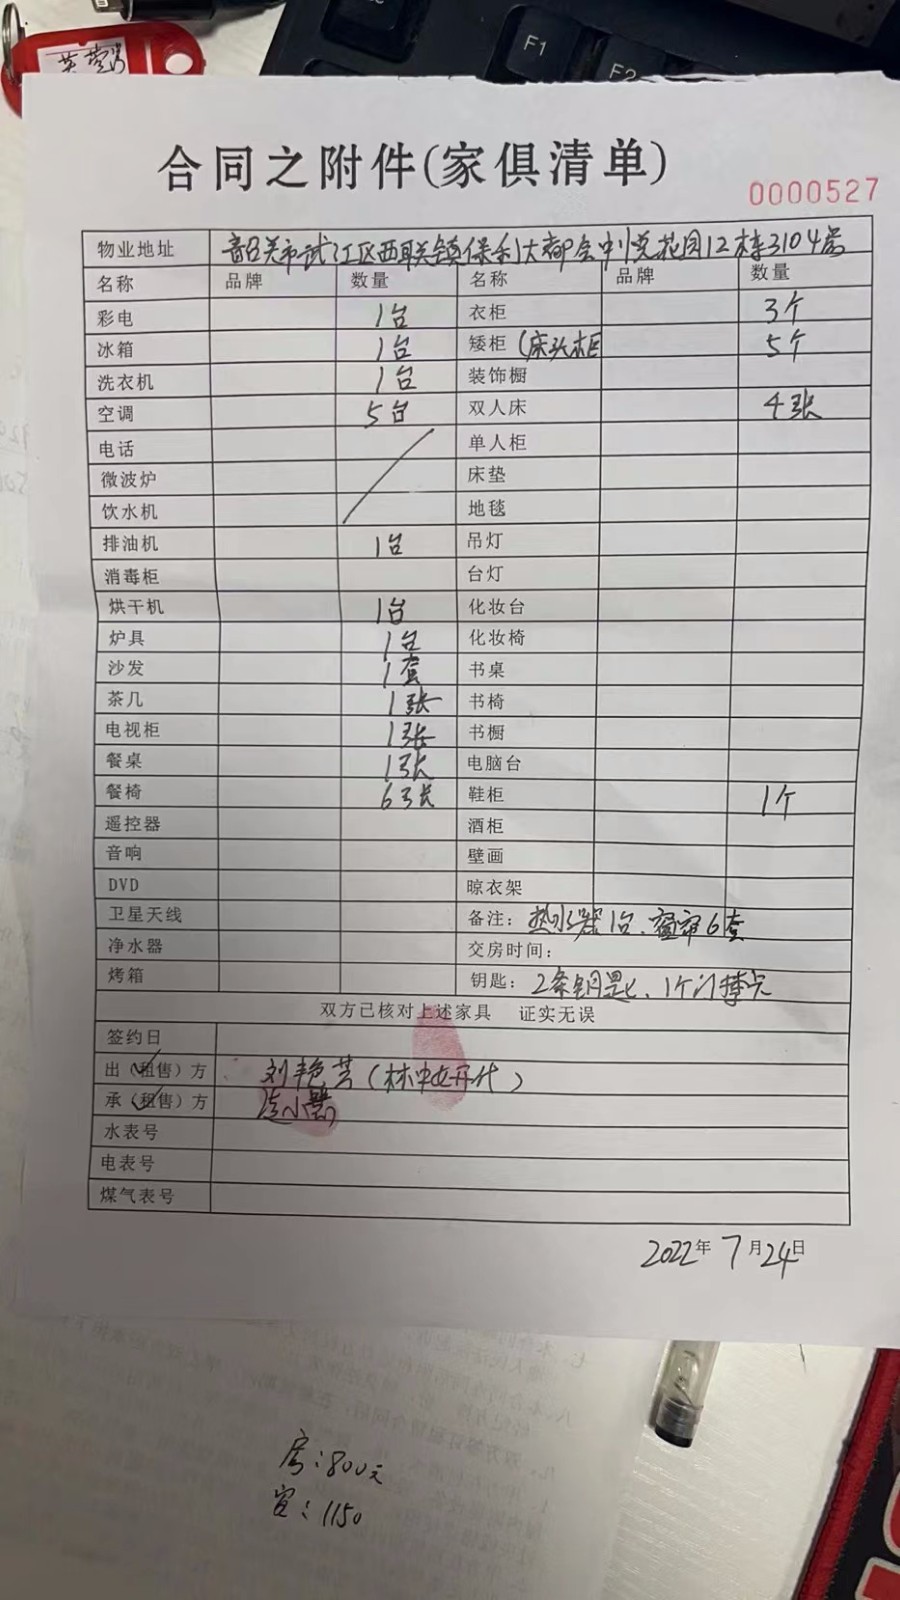 F1
F2
合同之附件(家俱清单)
0000527
物业地址 韶关市武江区西联镇保利大都会中悦花园12栋3104房
名称 品牌 数量 名称 品牌 数量
彩电 1台 衣柜 3个
冰箱 1台 矮柜(床头柜 5个
洗衣机 1台 装饰橱
空调 5台 双人床 4张
电话 单人柜
微波炉 床垫
饮水机 地毯
排油机 1台 吊灯
消毒柜 台灯
烘干机 1台 化妆台
炉具 1台 化妆椅
沙发 1套 书桌
茶几 1张 书椅
电视柜 1张 书橱
餐桌 1张 电脑台
餐椅 6张 鞋柜 1个
遥控器 酒柜
音响 壁画
DVD 晾衣架
卫星天线 备注：热水器1台、窗帘6套
净水器 交房时间：
烤箱 钥匙：2条钥匙、1个门禁卡
双方已核对上述家具 证实无误
签约日
出(租售)方 刘艳芸(林中 代)
承(租售)方
水表号
电表号
煤气表号
2022年7月24日
房：800元
宫：1150